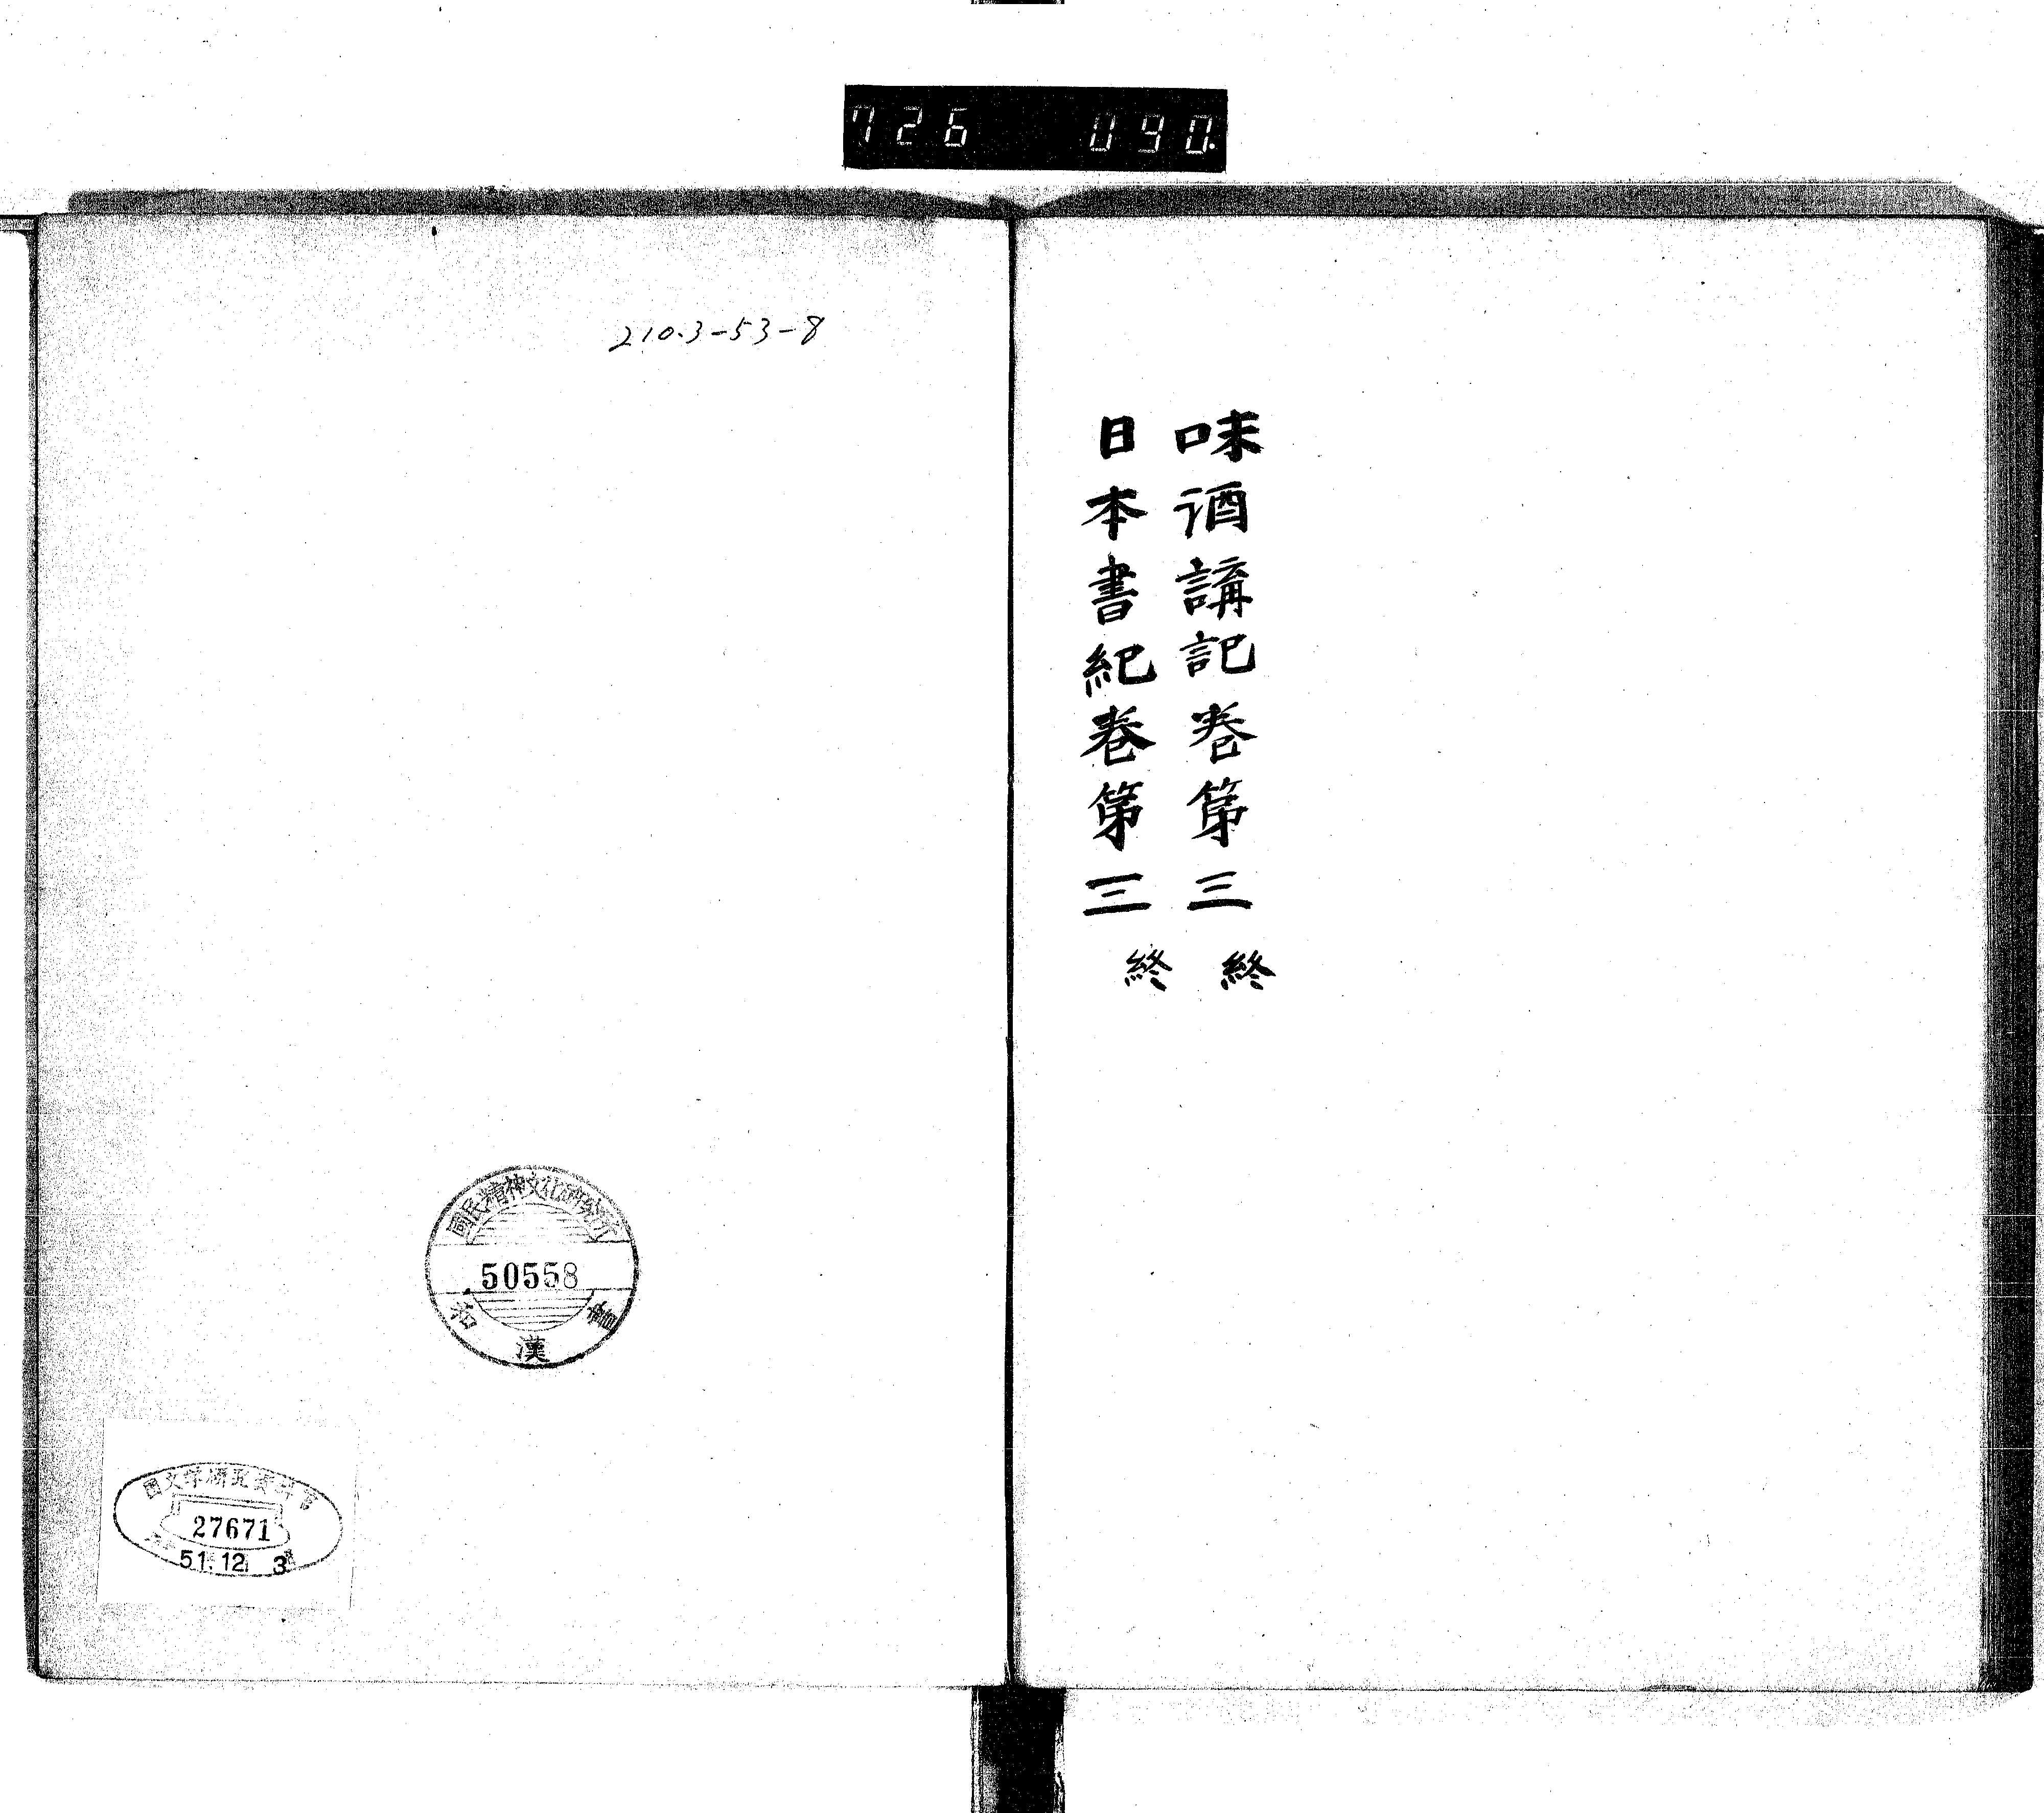 726 090.
味酒講記卷第三 終
日本書紀卷第三 終
210.3-53-8
國民精神文化研究所
50558
和漢書
國文学研究資料館
27671
51.12 3